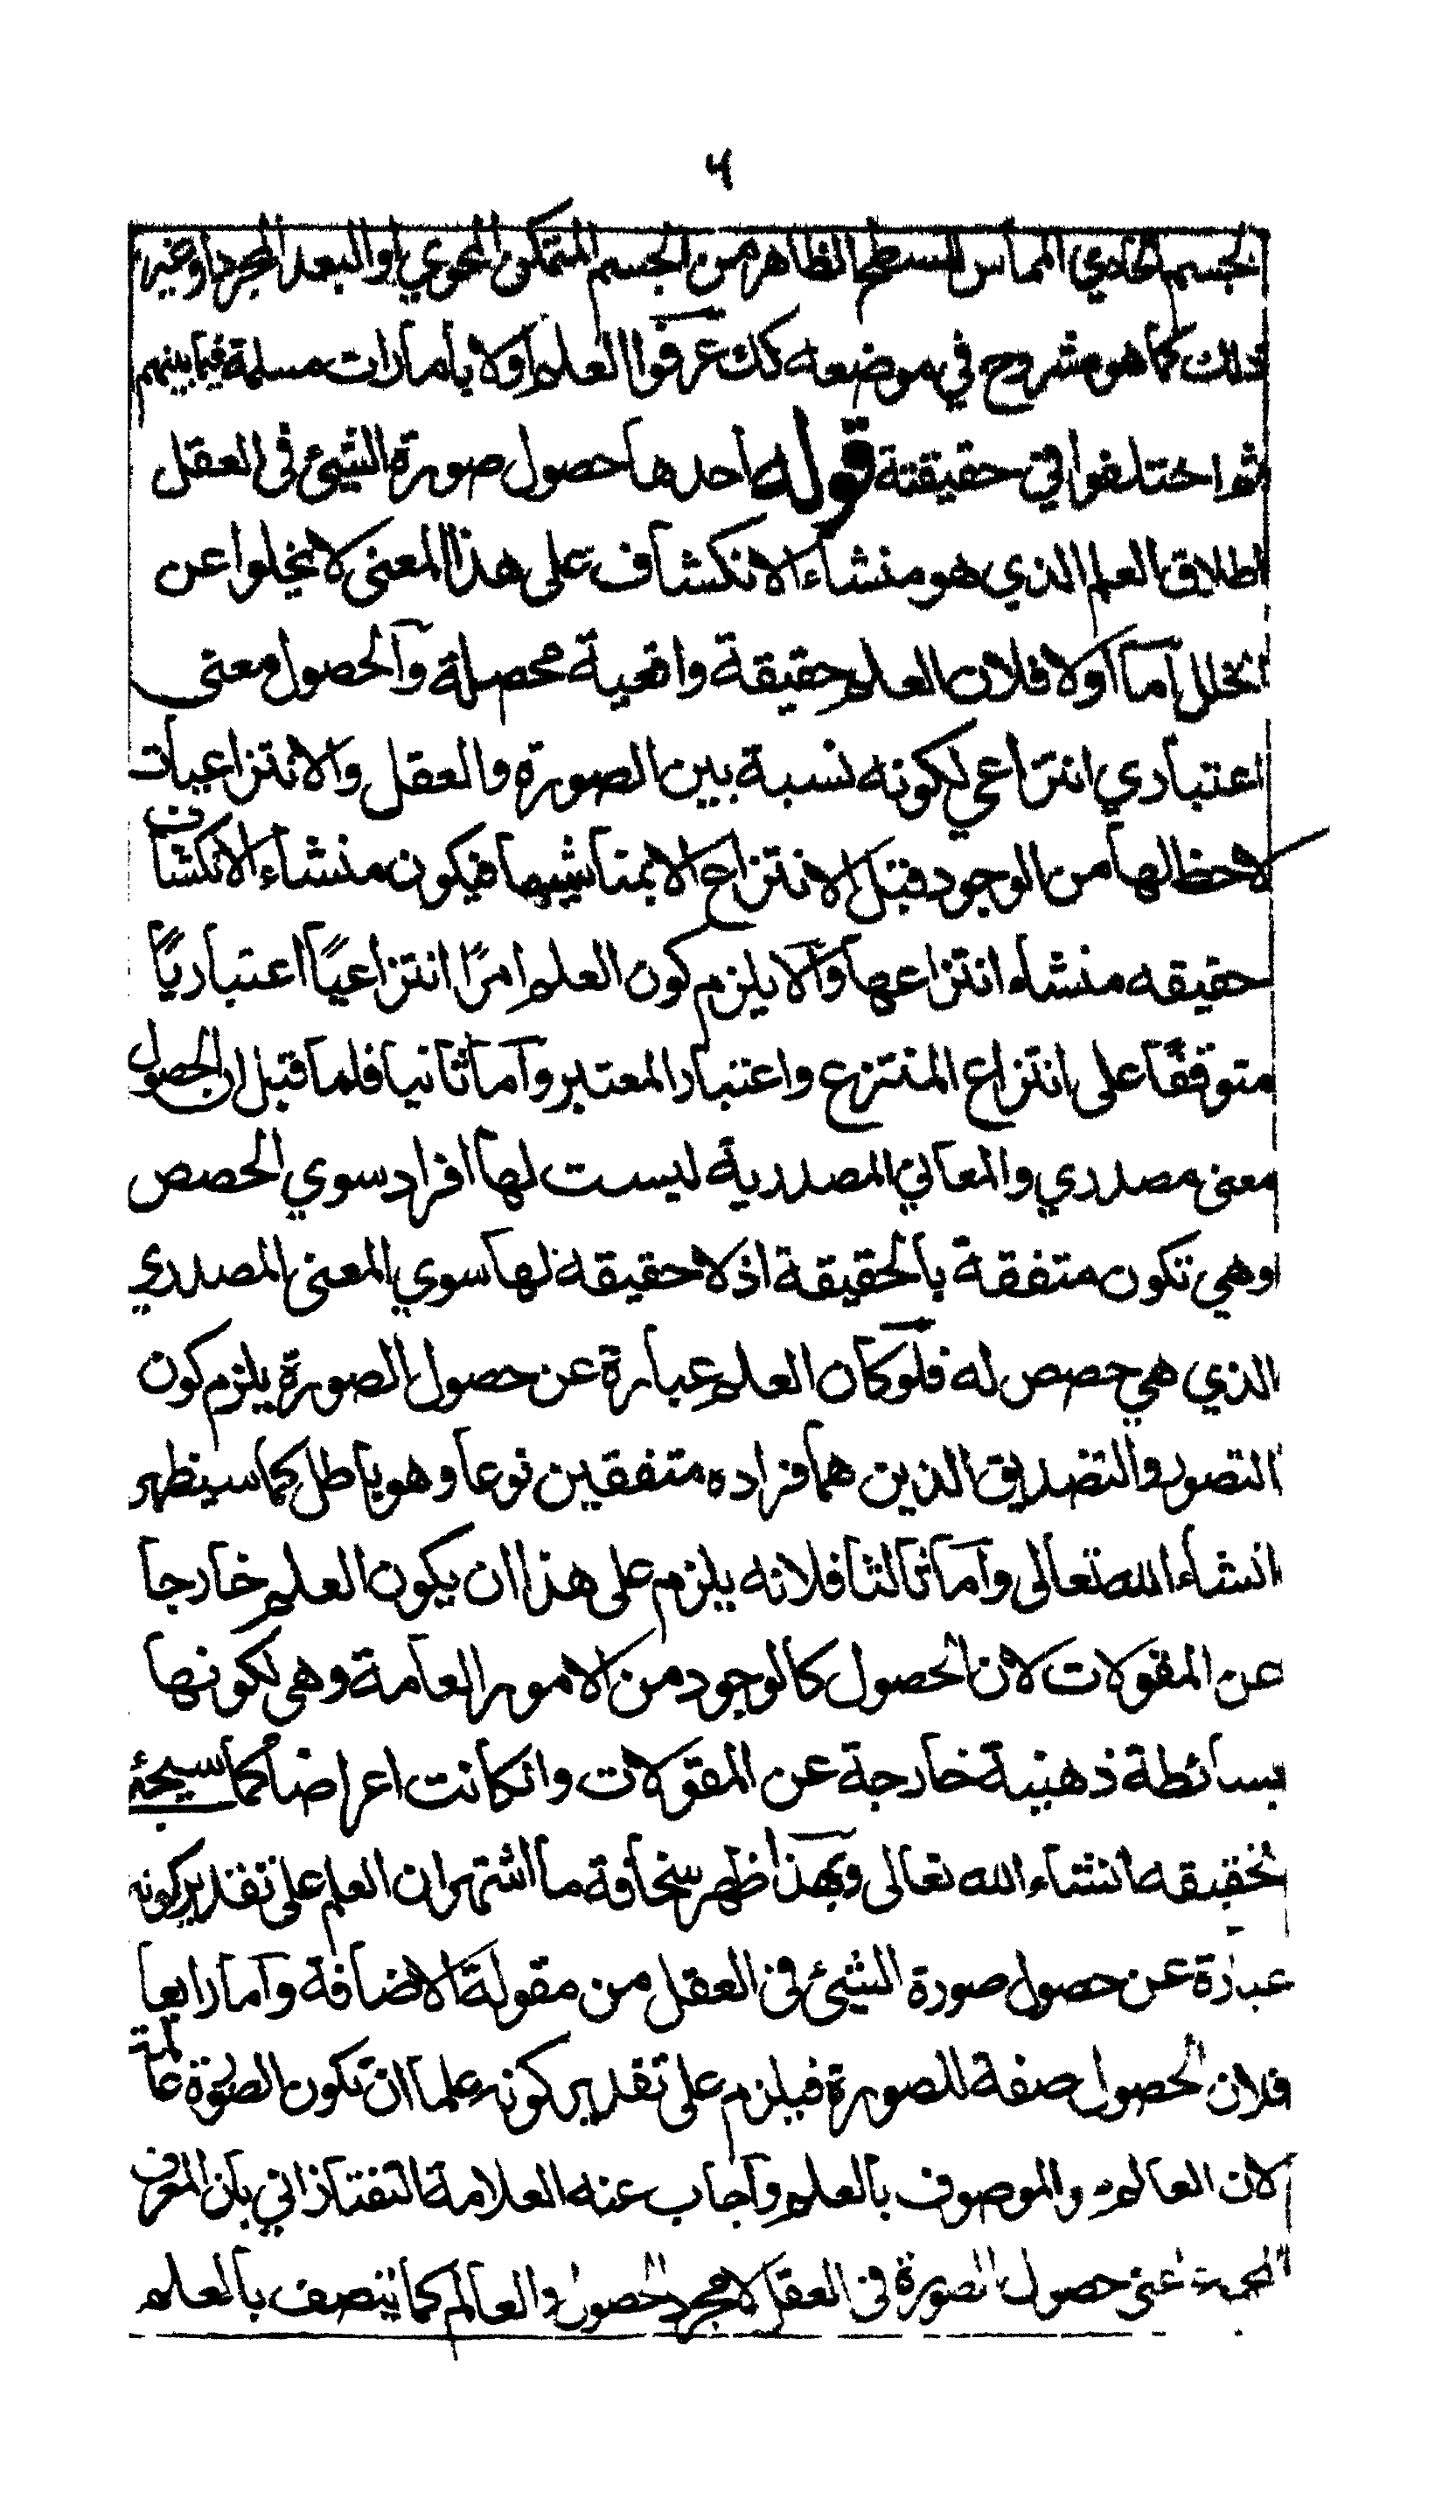 ٦
الجسم الحاوي المماس للسطح الظاهر من الجسم المتمكن المحوي او البعد المجرد او غير
ذلك كما هو مشروح في موضعه كك عرفوا العلم اولا بامارات مسلمة فيما بينهم
ثم اختلفوا في حقيقتة قوله احدها حصول صورة الشيئ فى العقل
اطلاق العلم الذي هو منشاء الانكشاف على هذا المعنى لا يخلوا عن
الخلل اما اولا فلان العلم حقيقة واقعية محصلة والحصول معنى
اعتباري انتزاعي لكونه نسبة بين الصورة والعقل والانتزاعيات
لاحظ لها من الوجود قبل الانتزاع الا بمناشيها فيكون منشاء الانكشاف
حقيقه منشاء انتزاعها والا يلزم كون العلم امرًا انتزاعيًا اعتباريًا
متوقفًا على انتزاع المنتزع واعتبار المعتبر واما ثانيا فلما قبل ان الحصول
معنى مصدري والمعاني المصدرية ليست لها افراد سوي الحصص
وهي تكون متفقة بالحقيقة اذ لا حقيقة لها سوي المعنى المصدري
الذي هي حصص له فلو كان العلم عبارة عن حصول الصورة يلزم كون
التصور والتصديق الذين هما فراده متفقين نوعا وهو باطل كما سيظهر
انشاء الله تعالى واما ثالثا فلانه يلزم على هذا ان يكون العلم خارجا
عن المقولات لان الحصول كالوجود من الامور العامة وهى لكونها
بسائطة ذهنية خارجة عن المقولات وانكانت اعراضا كما سيجئ
تحقيقه انشاء الله تعالى وبهذا ظهر سخافة ما اشتهر ان العلم على تقدير كونه
عبارة عن حصول صورة الشيئ فى العقل من مقولة الاضافة واما رابعا
فلان الحصول صفة للصورة فيلزم على تقدير كونه علما ان تكون الصورة عالمة
لان العالم هو الموصوف بالعلم واجاب عنه العلامة التفتازاني بان المعرف
حصول الصورة فى العقل لا مجرد الحصول والعالم كما يتصف بالعلم